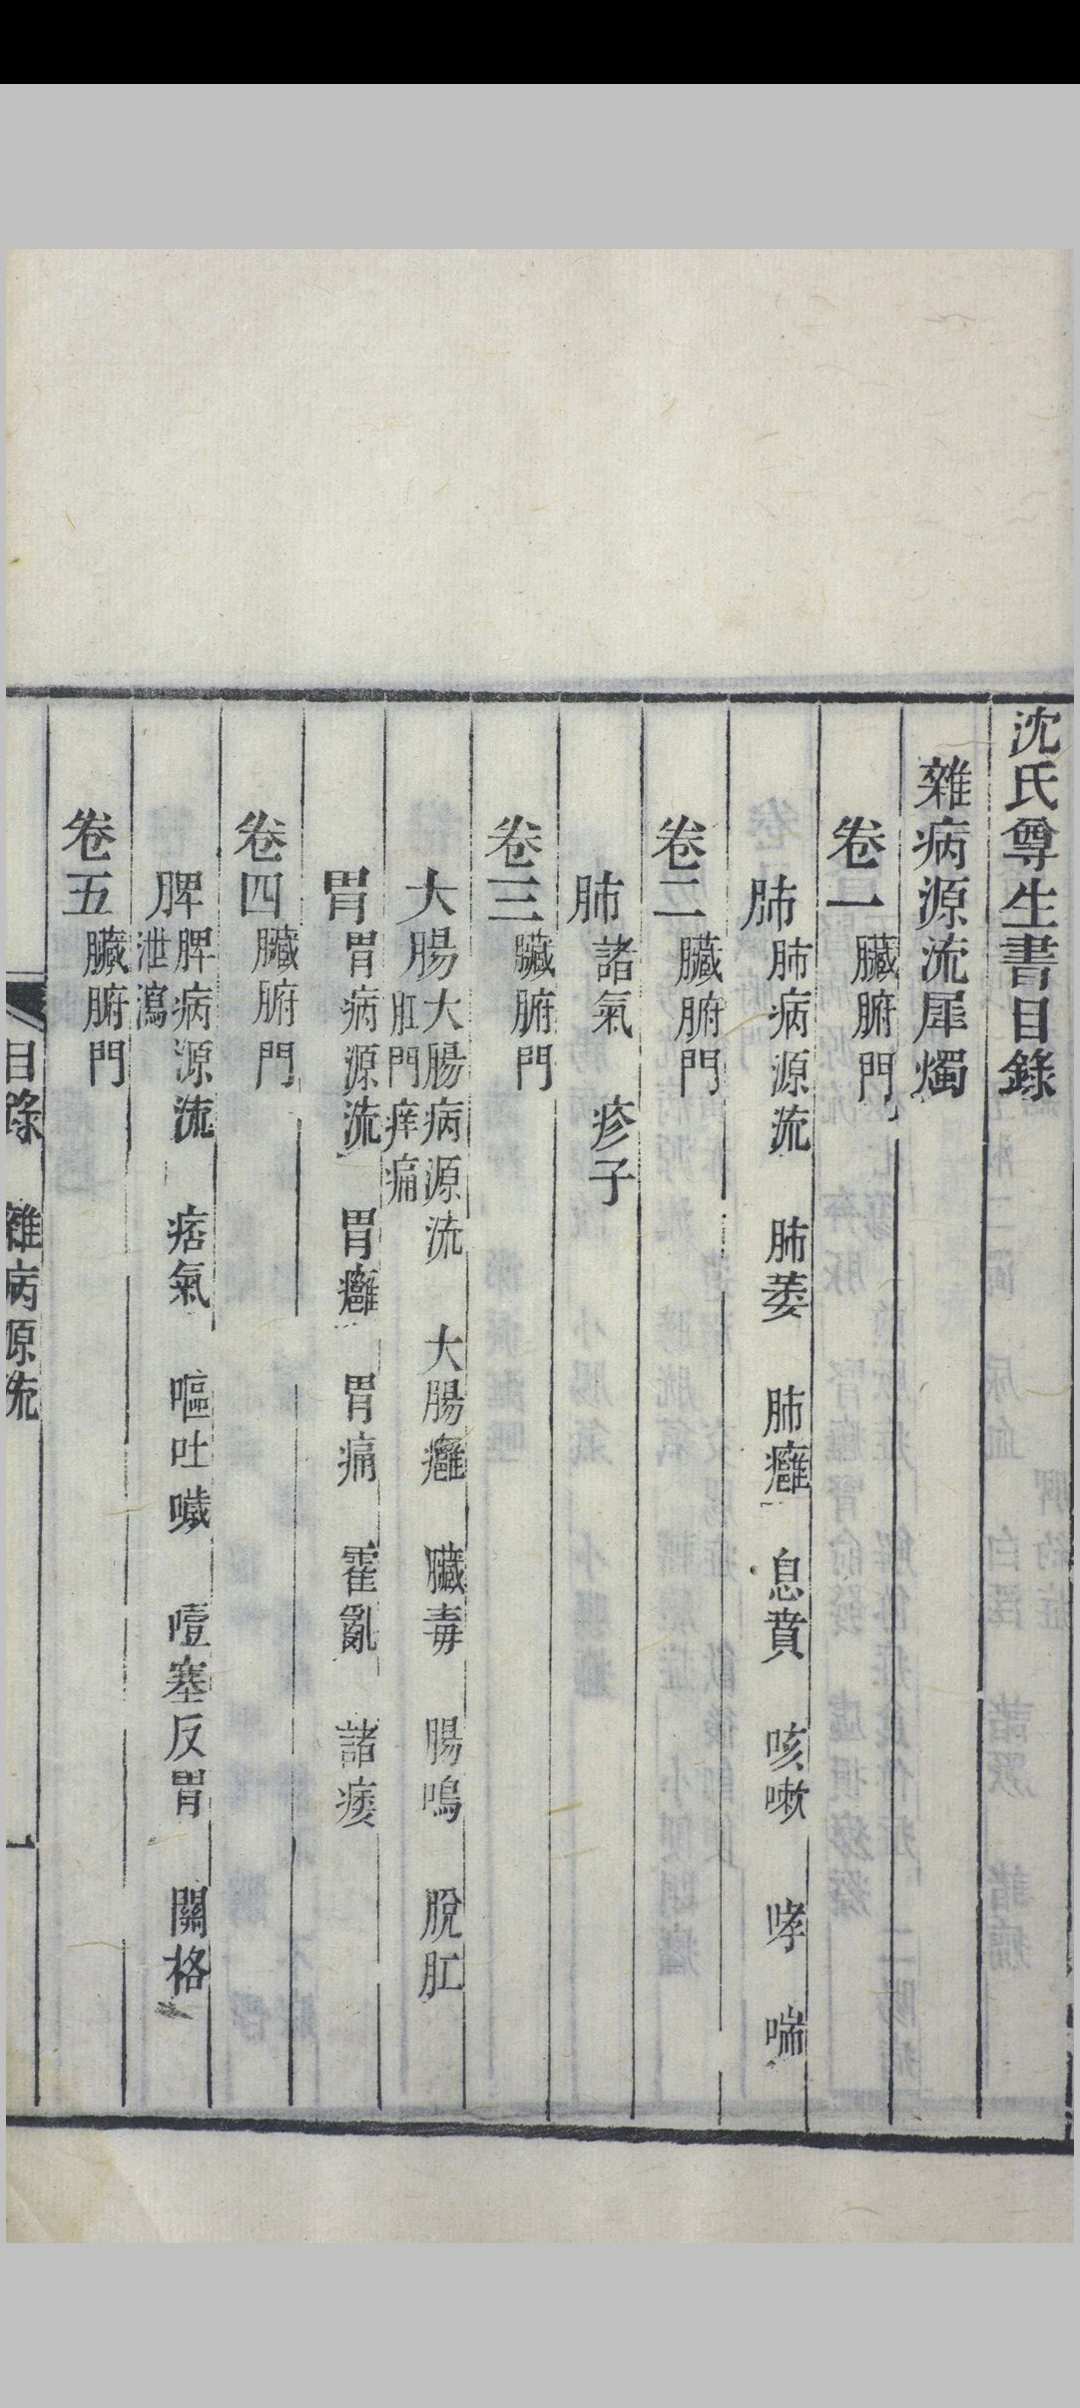 沈氏尊生書目錄
雜病源流犀燭
卷一 臟腑門
肺 肺病源流 肺萎 肺癰 息賁 咳嗽 哮 喘
卷二 臟腑門
肺 諸氣 疹子
卷三 臟腑門
大腸 大腸病源流 大腸癰 臟毒 腸鳴 脫肛
肛門痒痛
胃 胃病源流 胃癰 胃痛 霍亂 諸痿
卷四 臟腑門
脾 脾病源流 痞氣 嘔吐噦 噎塞反胃 關格
泄瀉
卷五 臟腑門
目錄 雜病源流 一